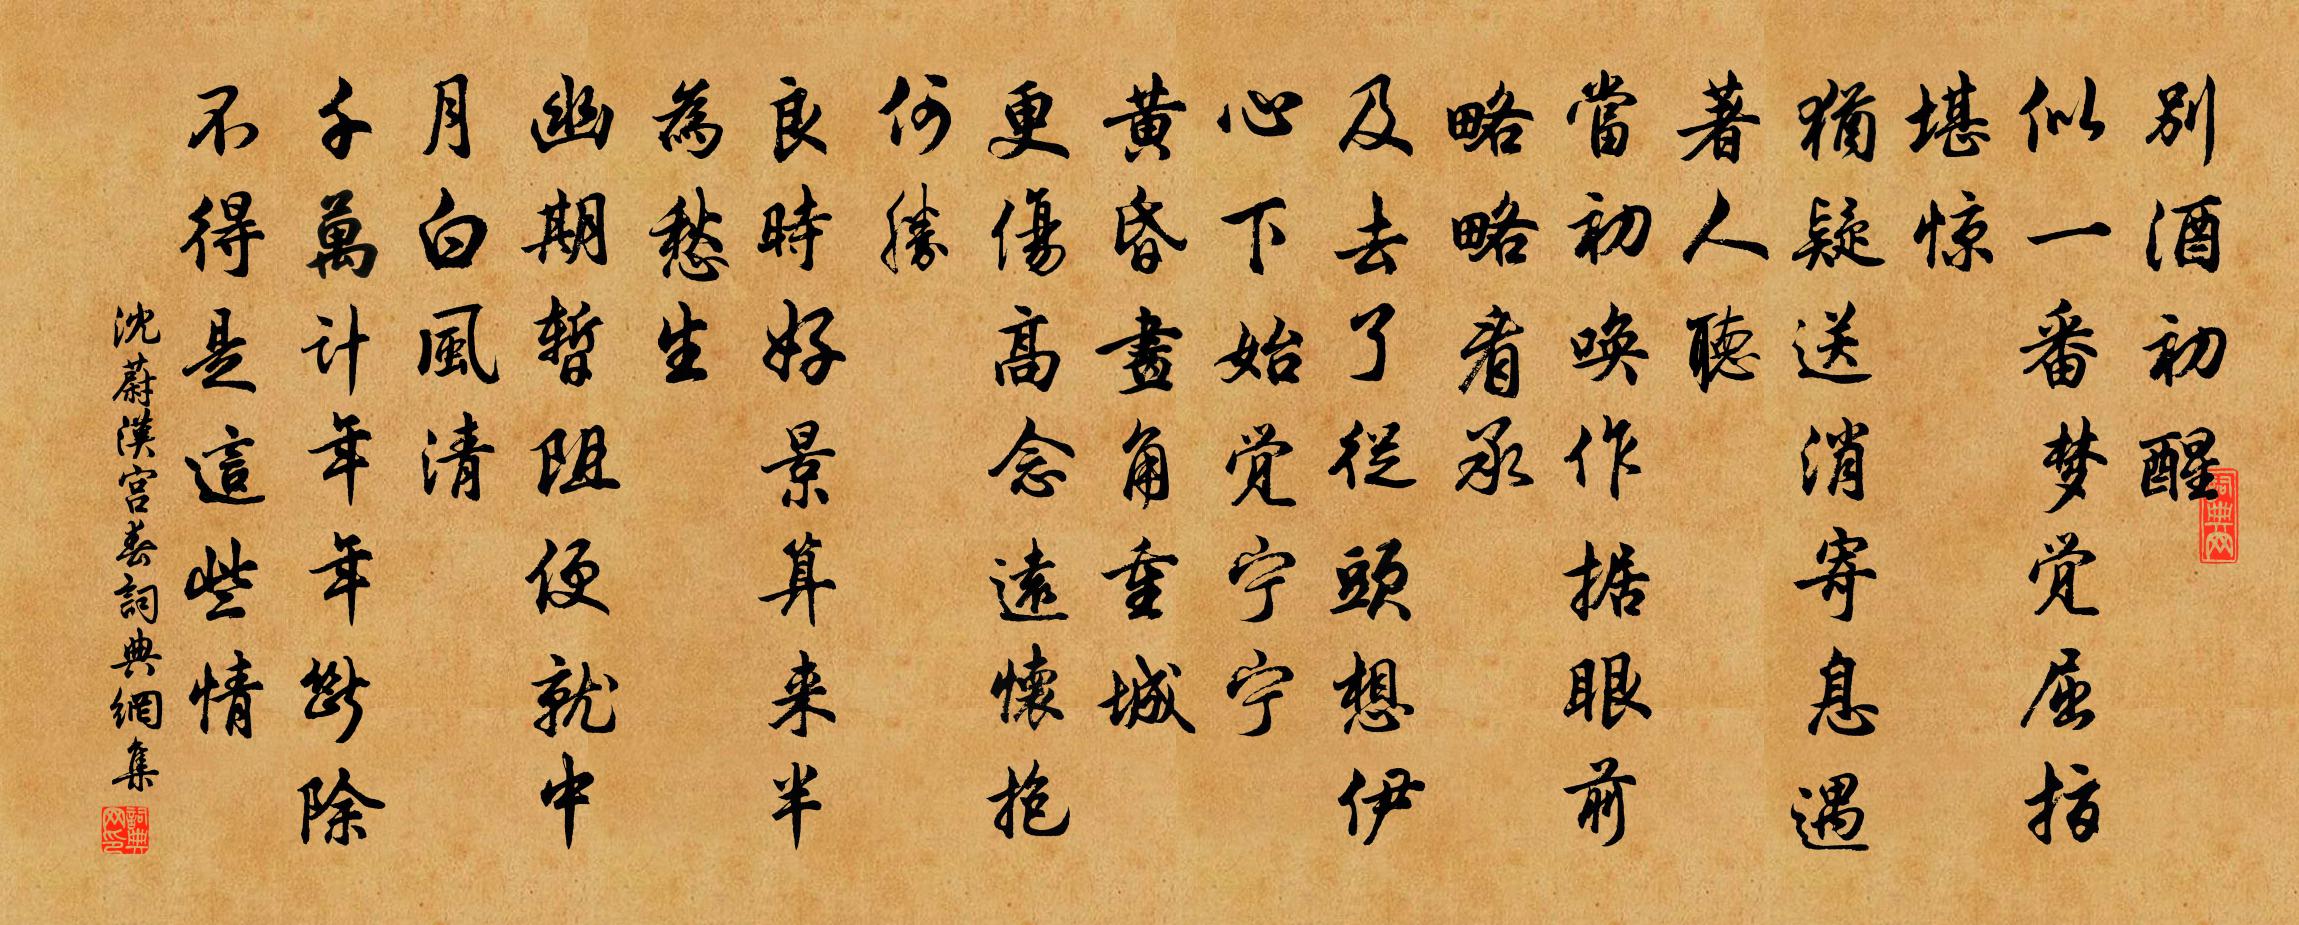 別酒初醒
似一番梦觉屈指
堪惊
猶疑送消寄息遇
著人聽
當初喚作据眼前
略略看承
及去了從頭想伊
心下始觉宁宁
黄昏畫角重城
更傷高念遠懷抱
何勝
良時好景算来半
為愁生
幽期暫阻便就中
月白風清
千萬计年年年斷除
不得是這些情
沈蔚漢宮春詞典網集
词典网
詞典网印